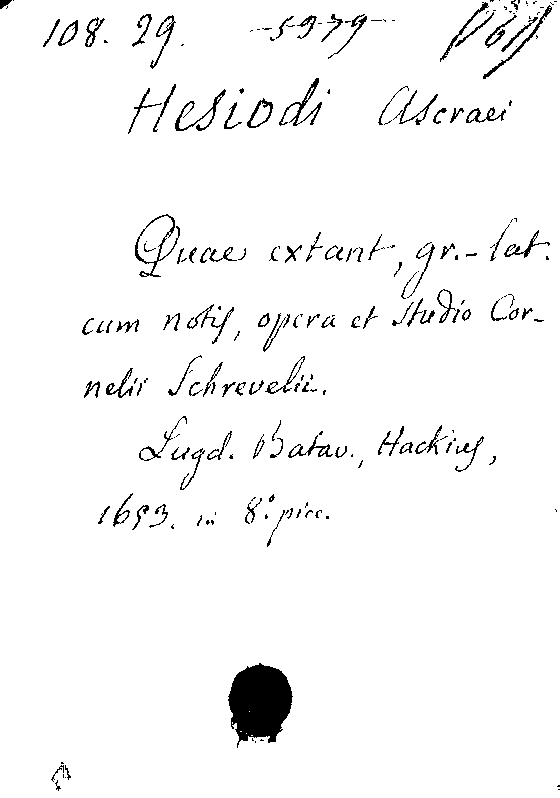 108. 29. 5979
Hesiodi Ascraei
Quae extant, gr.-lat.
cum notis, opera et studio Cor-
nelii Schrevelii.
Lugd. Batav., Hackius,
1653. in 8.° picc.